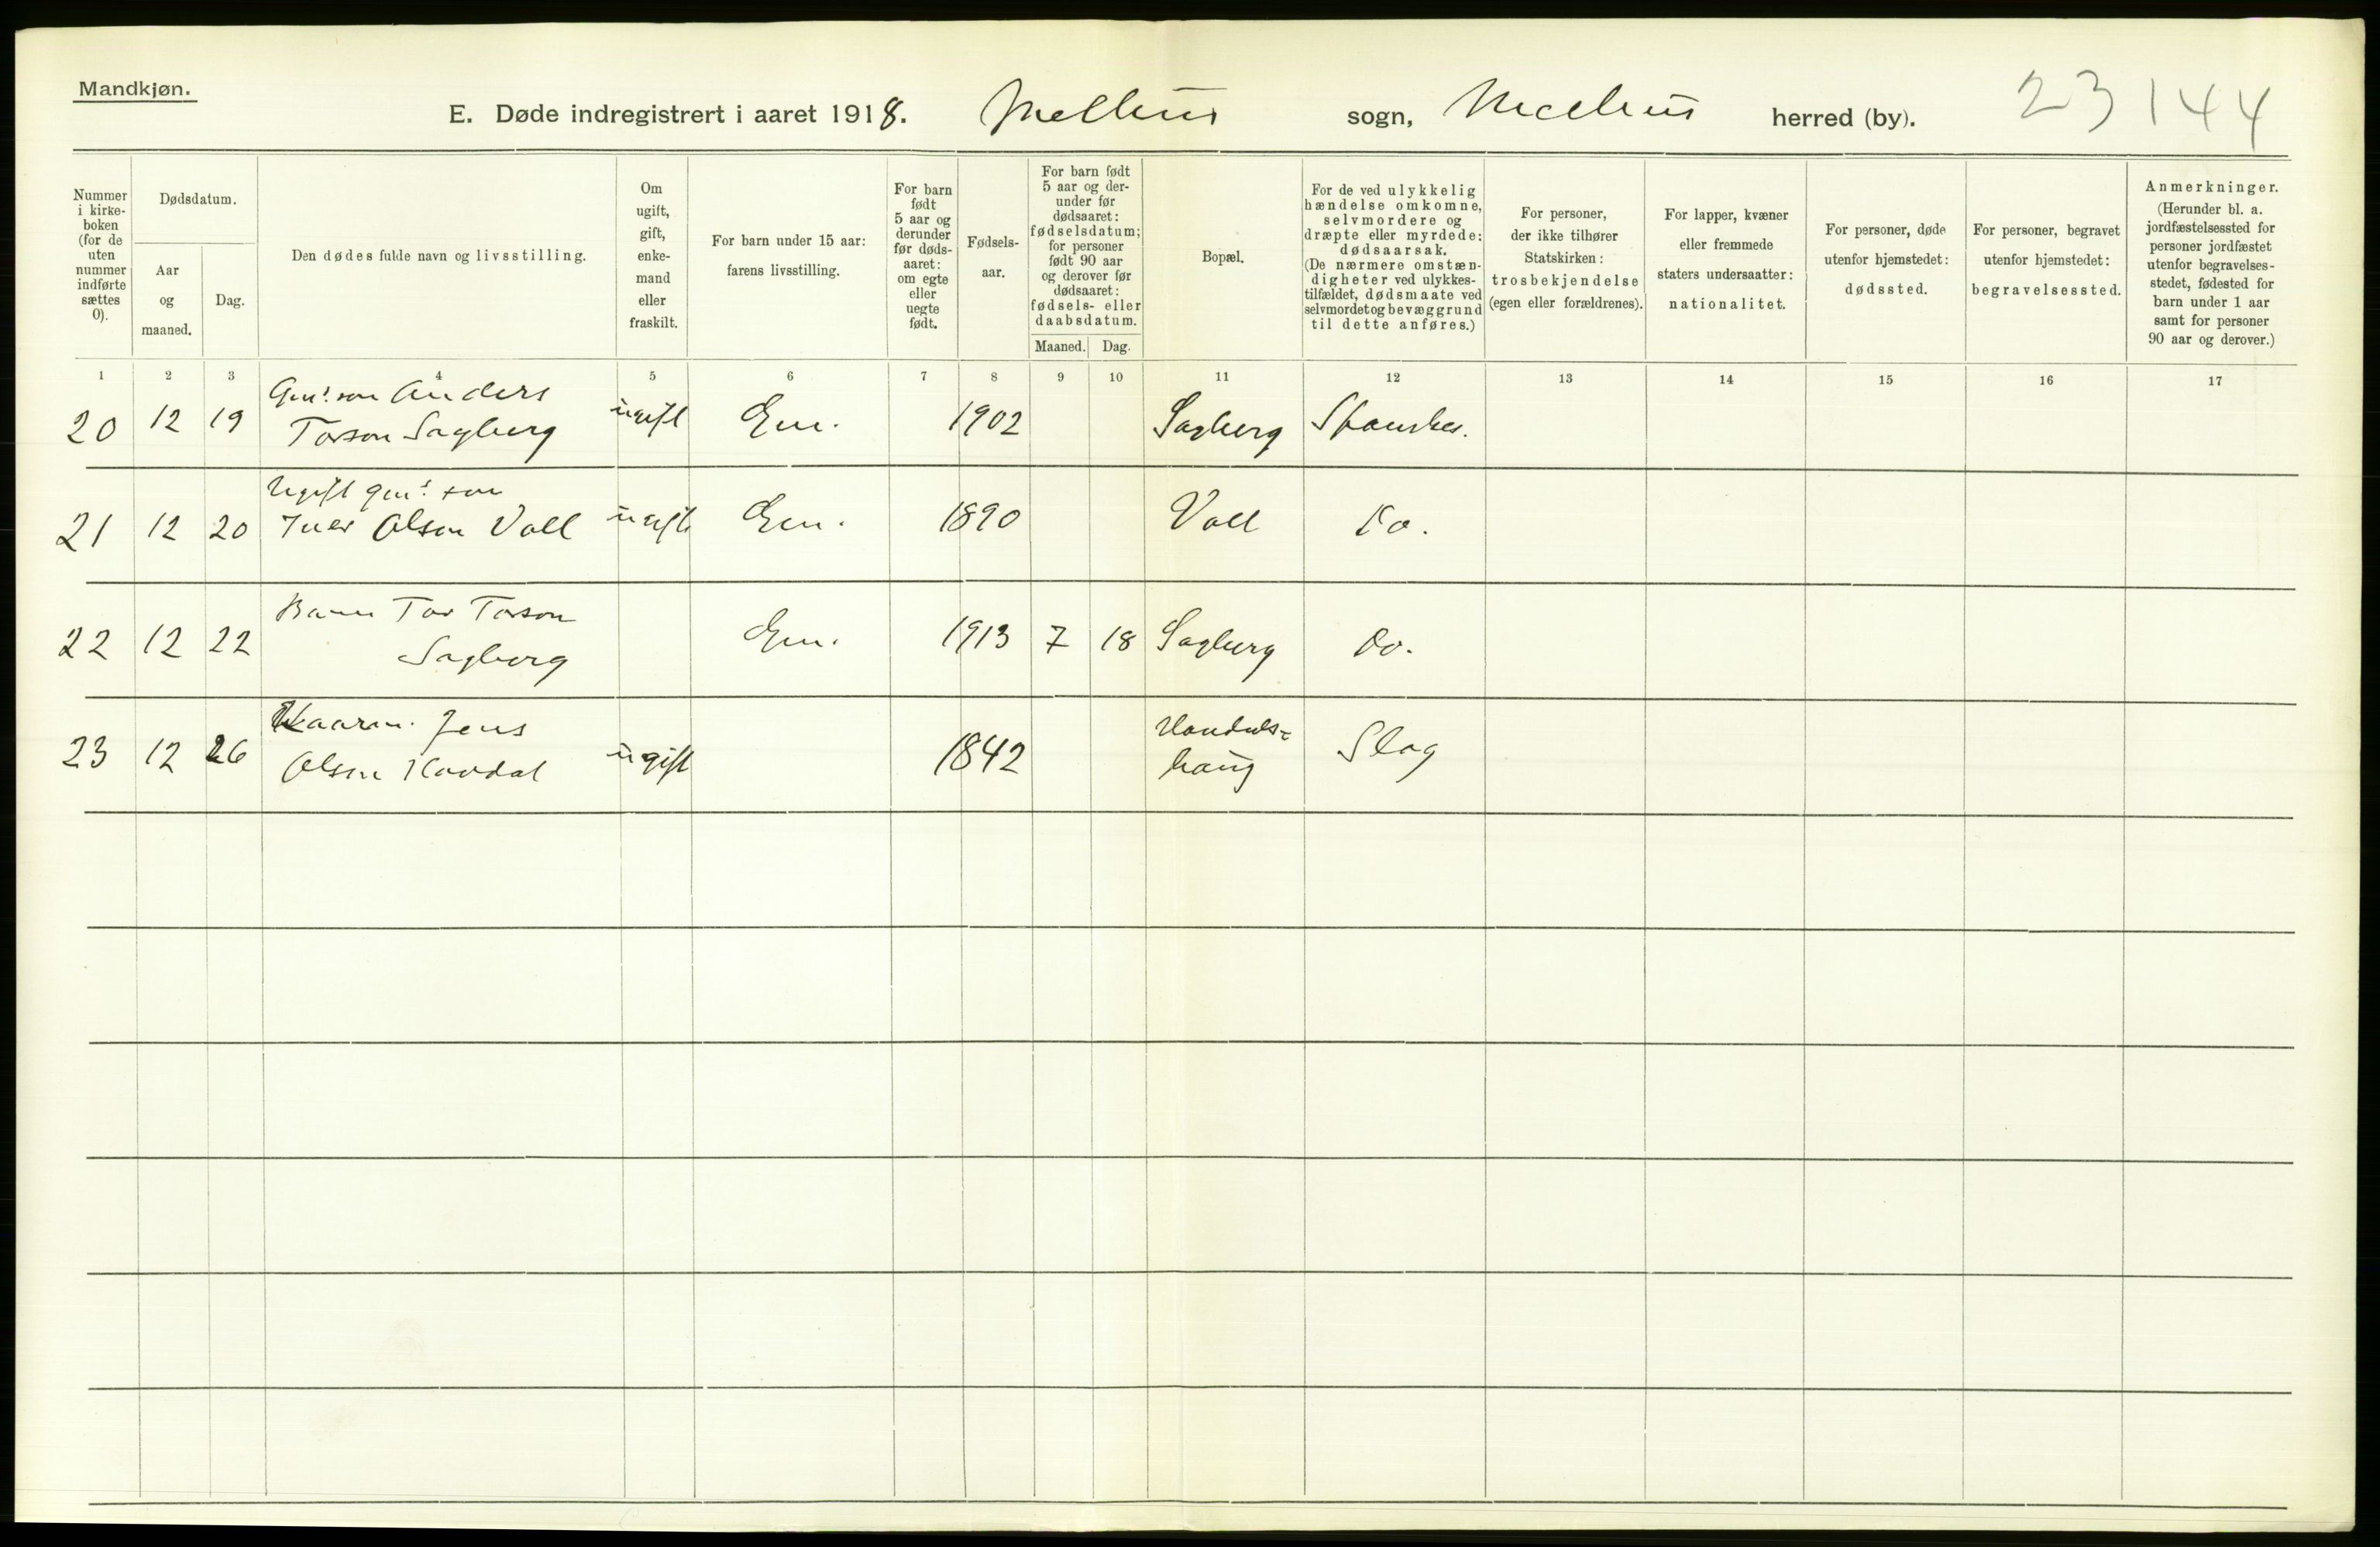 Mandkjøn.
E. Døde indregistrert i aaret 1918. Melhus sogn, Melhus herred (by). 23 144
Nummer i kirke- boken (for de uten nummer indførte sættes 0).
Dødsdatum.
Aar og maaned.
Dag.
Den dødes fulde navn og livsstilling.
Om ugift, gift, enke- mand eller fraskilt.
For barn under 15 aar: farens livsstilling.
For barn født 5 aar og derunder før døds- aaret: om egte eller uegte født.
Fødsels- aar.
For barn født 5 aar og der- under før dødsaaret: fødselsdatum; for personer født 90 aar og derover før dødsaaret: fødsels- eller daabsdatum.
Maaned. Dag.
Bopæl.
For de ved ulykkelig hændelse omkomne, selvmordere og dræpte eller myrdede: dødsaarsak. (De nærmere omstæn- digheter ved ulykkes- tilfældet, dødsmaate ved selvmordet og bevæggrund til dette anføres.)
For personer, der ikke tilhører Statskirken: trosbekjendelse (egen eller forældrenes).
For lapper, kvæner eller fremmede staters undersaatter: nationalitet.
For personer, døde utenfor hjemstedet: dødssted.
For personer, begravet utenfor hjemstedet: begravelsessted.
Anmerkninger. (Herunder bl. a. jordfæstelsessted for personer jordfæstet utenfor begravelses- stedet, fødested for barn under 1 aar samt for personer 90 aar og derover.)
1 2 3 4 5 6 7 8 9 10 11 12 13 14 15 16 17
Gmsson Anders
20 12 19 Torson Sagberg ugift Gm. 1902 Sagberg Spanskes.
Ugift gms son
21 12 20 Iver Olsen Voll ugift Gm. 1890 Voll Do.
Barn Tor Torson
22 12 22 Sagberg Gm. 1913 7 18 Sagberg Do.
Kaarm. Jens
23 12 26 Olsen ugift 1842 haug Slag